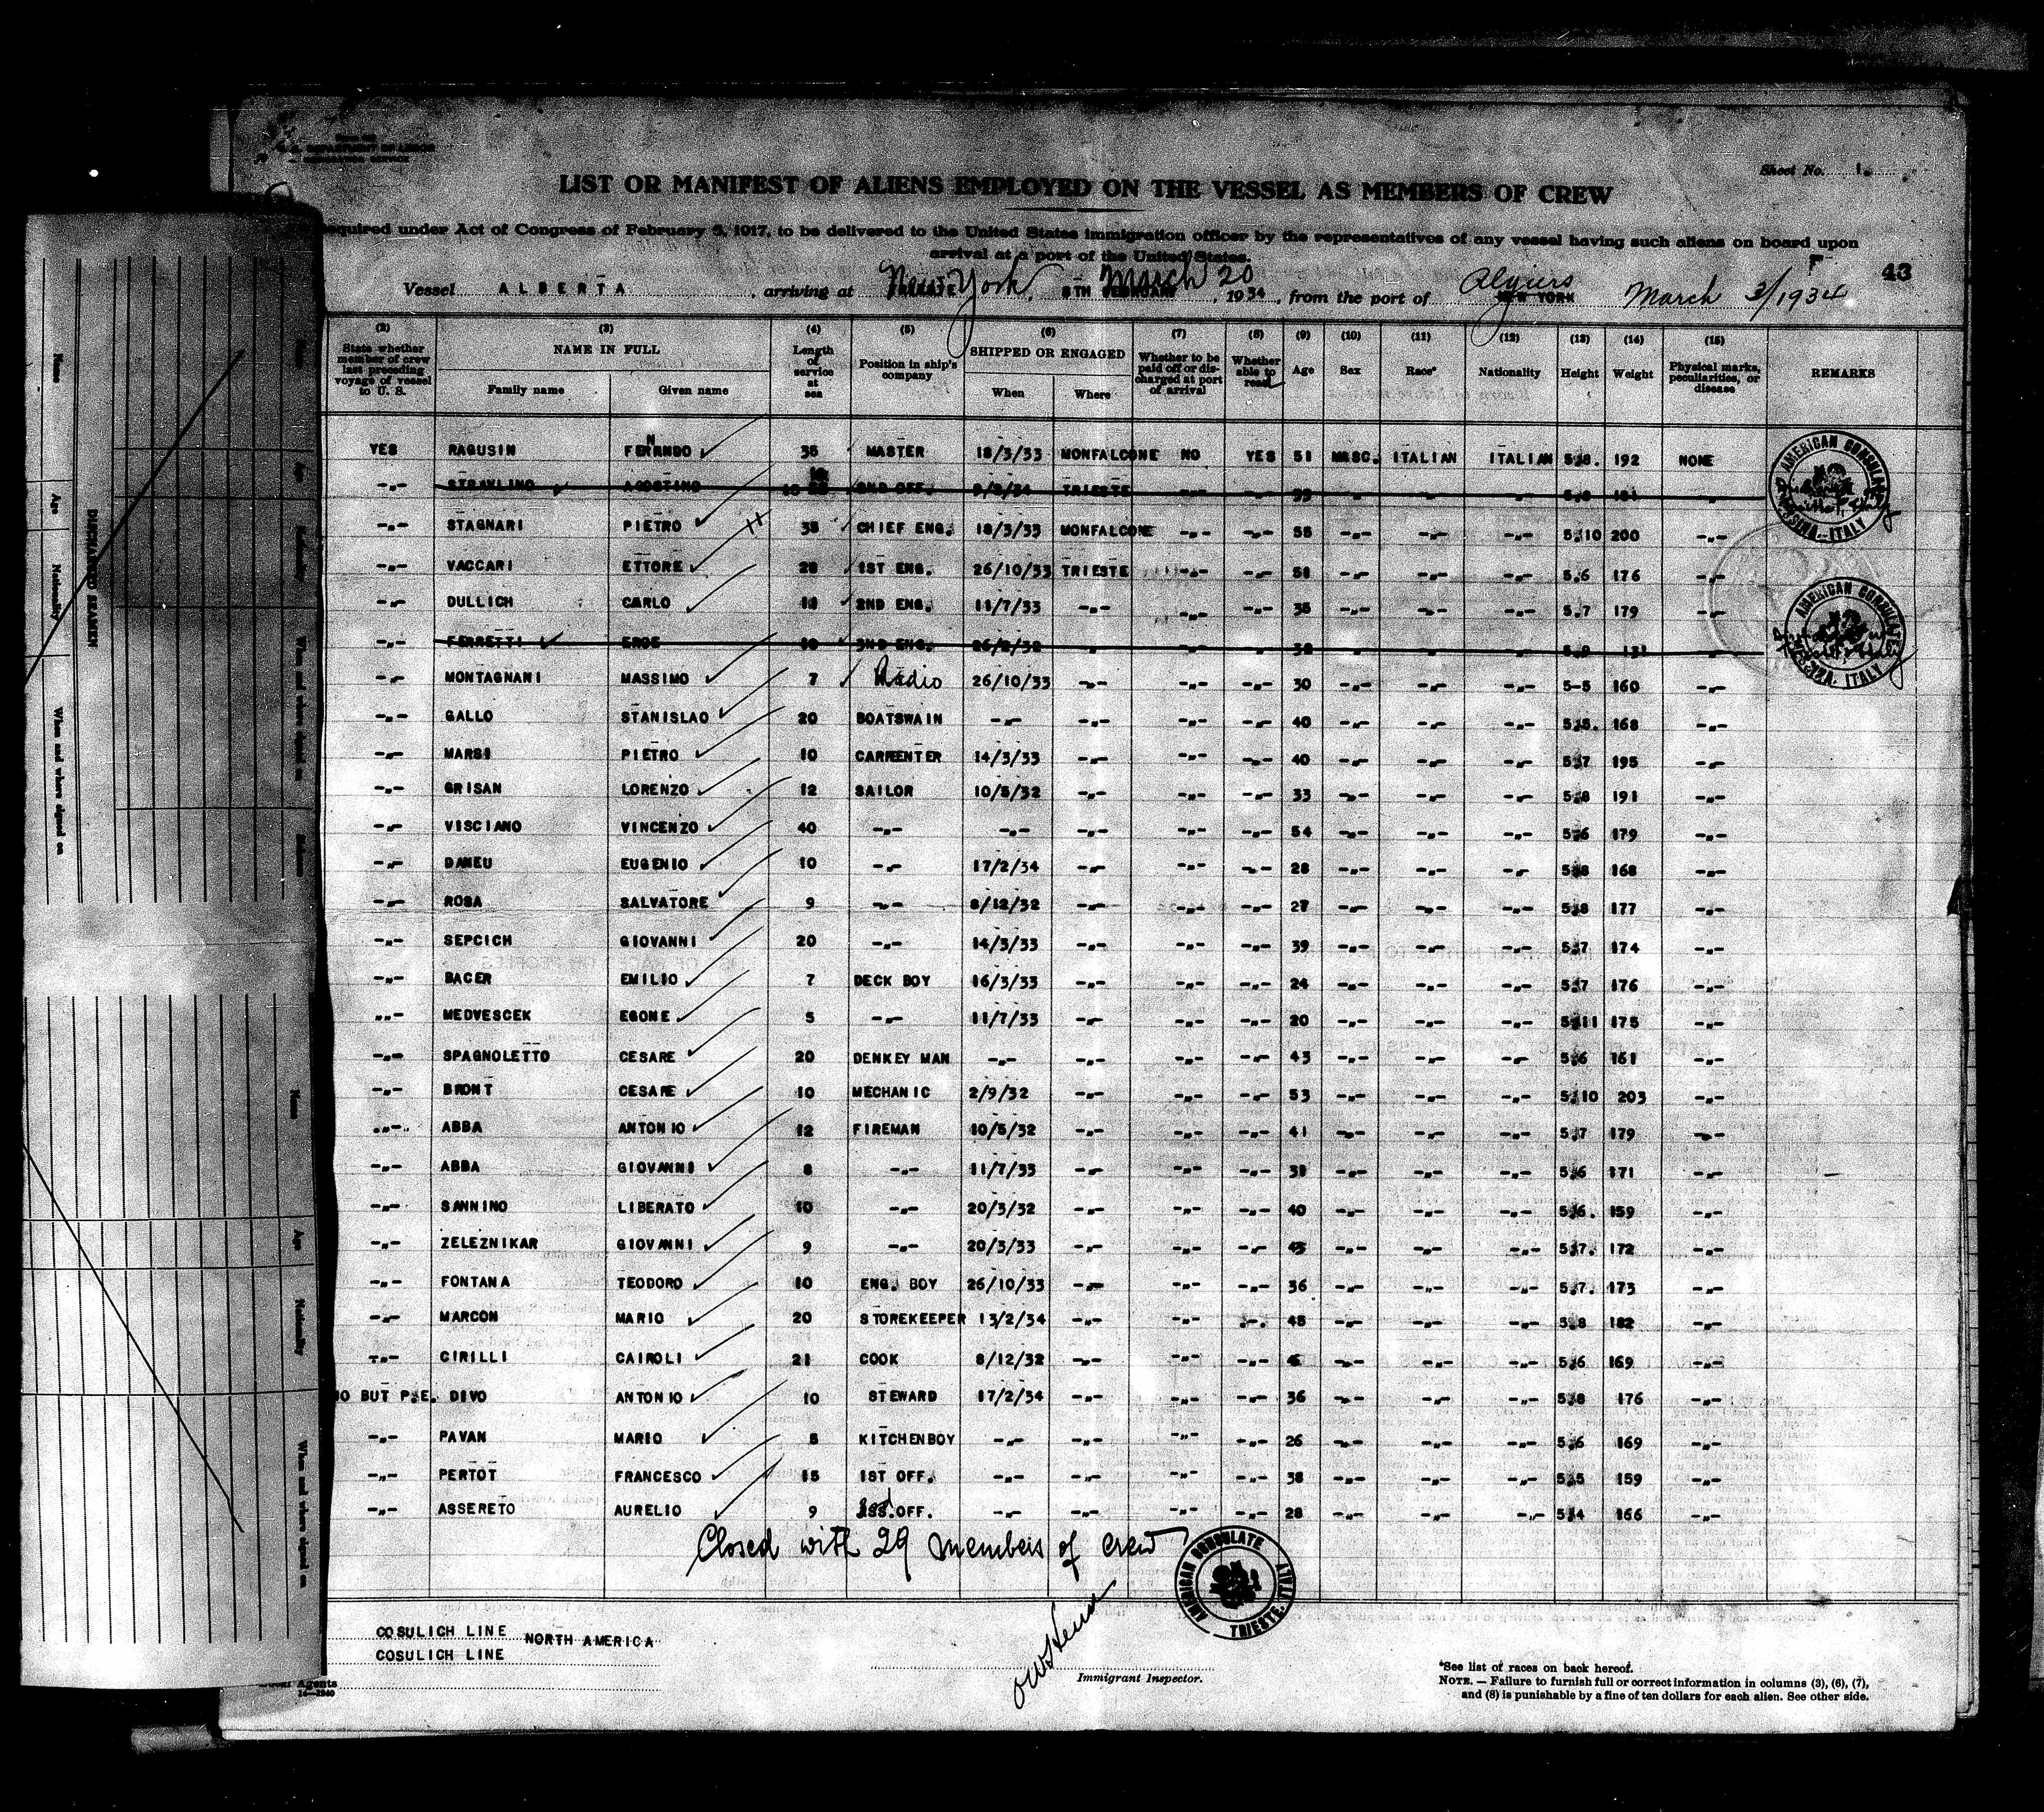 Sheet No. 1.
LIST OR MANIFEST OF ALIENS EMPLOYED ON THE VESSEL AS MEMBERS OF CREW
equired under Act of Congress of February 5, 1917, to be delivered to the United States immigration officer by the representatives of any vessel having such aliens on board upon
arrival at a port of the United States.
43
Vessel ALBERTA, arriving at New York, March 20, 1934, from the port of Algiers March 3/1934
(2) (3) (4) (5) (6) (7) (8) (9) (10) (11) (12) (13) (14) (15)
State whether member of crew last preceding voyage of vessel to U. S. NAME IN FULL Family name Given name Length of service at sea Position in ship's company SHIPPED OR ENGAGED When Where Whether to be paid off or discharged at port of arrival Whether able to read Age Sex Race* Nationality Height Weight Physical marks, peculiarities, or disease REMARKS
YES RAGUSIN FERNANDO 35 MASTER 18/3/33 MONFALCONE NO YES 51 MASC. ITALIAN ITALIAN 5.8. 192 NONE
-"- STRAVLINO AGOSTINO 2ND OFF. TRIESTE -"- -"-
-"- STAGNARI PIETRO 35 CHIEF ENG. 18/3/33 MONFALCONE -"- -"- 55 -"- -"- -"- 5.10 200 -"-
-"- VACCARI ETTORE 28 1ST ENG. 26/10/33 TRIESTE -"- -"- 51 -"- -"- -"- 5.6 176 -"-
-"- DULLICH CARLO 12 2ND ENG. 11/7/33 -"- -"- -"- 35 -"- -"- -"- 5.7 179 -"-
-"- FERRETTI EROE 10 3ND ENG.
-"- MONTAGNANI MASSIMO 7 Radio 26/10/33 -"- -"- -"- 30 -"- -"- -"- 5-5 160 -"-
-"- GALLO STANISLAO 20 BOATSWAIN -"- -"- -"- -"- 40 -"- -"- -"- 5.5. 168 -"-
-"- MARSI PIETRO 10 CARPENTER 14/3/33 -"- -"- -"- 40 -"- -"- -"- 5.7 195 -"-
-"- GRISAN LORENZO 12 SAILOR 10/5/32 -"- -"- -"- 33 -"- -"- -"- 5.8 191 -"-
-"- VISCIANO VINCENZO 40 -"- -"- -"- -"- -"- 54 -"- -"- -"- 5.6 179 -"-
-"- DANEU EUGENIO 10 -"- 17/2/34 -"- -"- -"- 28 -"- -"- -"- 5.8 168 -"-
-"- ROSA SALVATORE 9 -"- 8/12/32 -"- -"- -"- 27 -"- -"- -"- 5.8 177 -"-
-"- SEPCICH GIOVANNI 20 -"- 14/3/33 -"- -"- -"- 39 -"- -"- -"- 5.7 174 -"-
-"- BACER EMILIO 7 DECK BOY 16/3/33 -"- -"- -"- 24 -"- -"- -"- 5.7 176 -"-
-"- MEDVESCEK EGONE 5 -"- 11/7/33 -"- -"- -"- 20 -"- -"- -"- 5.11 175 -"-
-"- SPAGNOLETTO CESARE 20 DENKEY MAN -"- -"- -"- -"- 43 -"- -"- -"- 5.6 161 -"-
-"- BRONT CESARE 10 MECHANIC 2/9/32 -"- -"- -"- 53 -"- -"- -"- 5.10 203 -"-
-"- ABBA ANTONIO 12 FIREMAN 10/5/32 -"- -"- -"- 41 -"- -"- -"- 5.7 179 -"-
-"- ABBA GIOVANNI 8 -"- 11/7/33 -"- -"- -"- 31 -"- -"- -"- 5.6 171 -"-
-"- SANNINO LIBERATO 10 -"- 20/3/32 -"- -"- -"- 40 -"- -"- -"- 5.6. 159 -"-
-"- ZELEZNIKAR GIOVANNI 9 -"- 20/3/33 -"- -"- -"- 43 -"- -"- -"- 5.7. 172 -"-
-"- FONTANA TEODORO 10 ENG. BOY 26/10/33 -"- -"- -"- 36 -"- -"- -"- 5.7. 173 -"-
-"- MARCON MARIO 20 STOREKEEPER 13/2/34 -"- -"- -"- 45 -"- -"- -"- 5.8 182 -"-
-"- CIRILLI CAIROLI 21 COOK 8/12/32 -"- -"- -"- -"- -"- -"- 5.6 169 -"-
NO BUT P.E. DIVO ANTONIO 10 STEWARD 17/2/34 -"- -"- -"- 36 -"- -"- -"- 5.8 176 -"-
-"- PAVAN MARIO 8 KITCHENBOY -"- -"- -"- -"- 26 -"- -"- -"- 5.6 169 -"-
-"- PERTOT FRANCESCO 15 1ST OFF. -"- -"- -"- -"- 38 -"- -"- -"- 5.5 159 -"-
-"- ASSERETO AURELIO 9 OFF. -"- -"- -"- -"- 28 -"- -"- -"- 5.4 166 -"-
Closed with 29 members of crew
AMERICAN CONSULATE TRIESTE, ITALY
AMERICAN CONSULATE MESSINA, ITALY
AMERICAN CONSULATE MESSINA, ITALY
COSULICH LINE NORTH AMERICA
COSULICH LINE
Agents
Immigrant Inspector.
*See list of races on back hereof.
NOTE. — Failure to furnish full or correct information in columns (3), (6), (7),
and (8) is punishable by a fine of ten dollars for each alien. See other side.
DISCHARGED SEAMEN
Name Age Nationality When and where signed on
Name Age Nationality When and where signed on